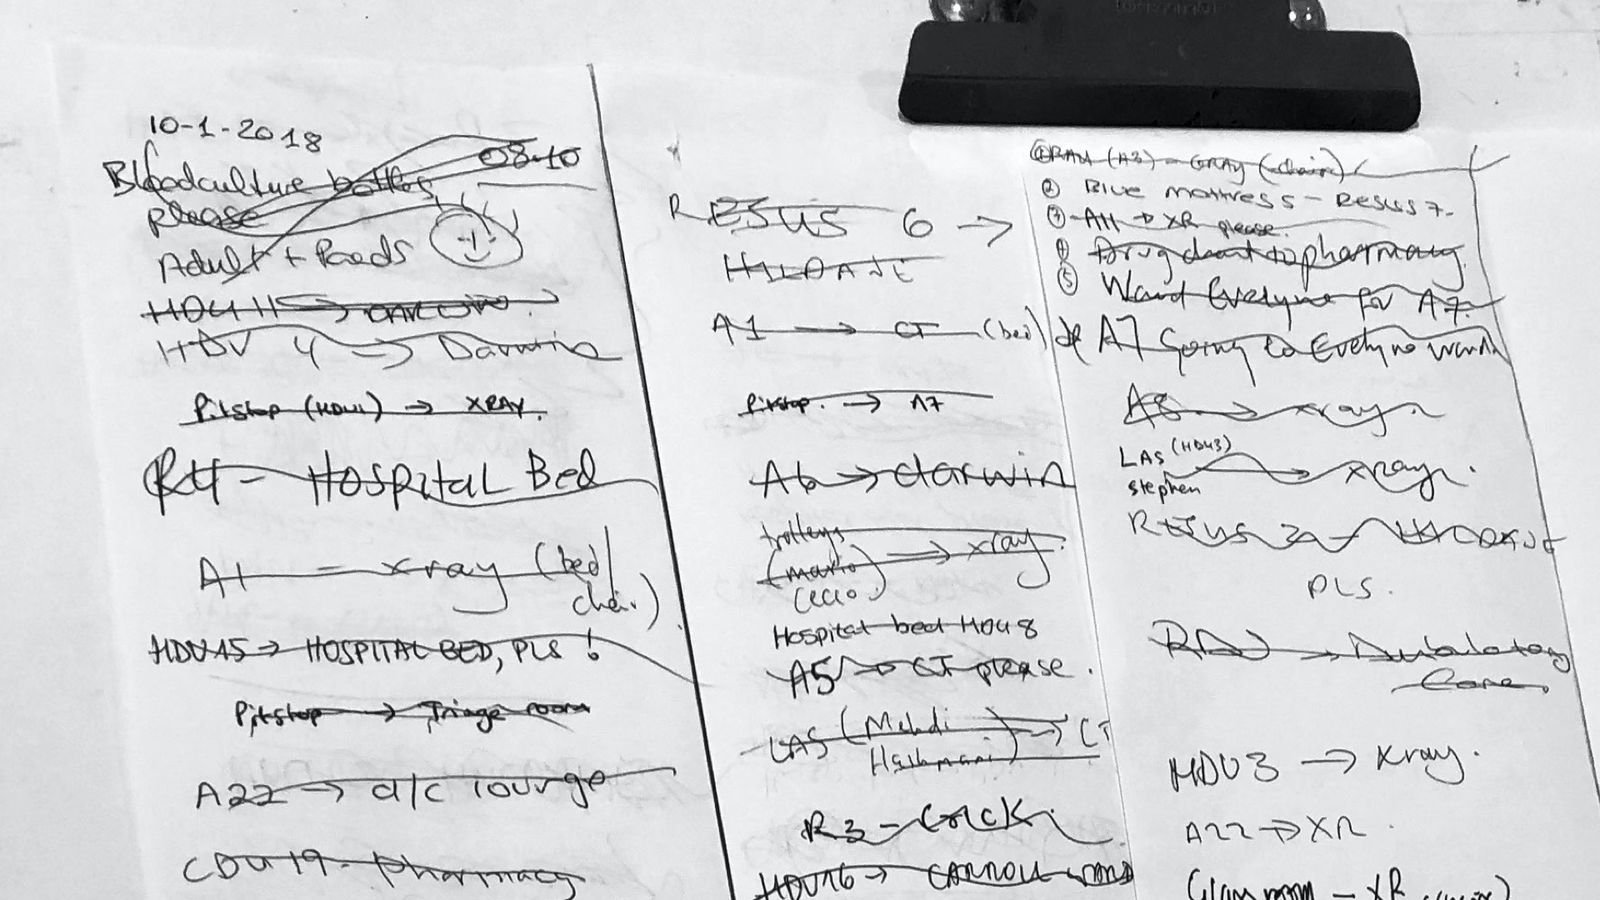 10-1-2018
08:10
Bloodculture bottles
please
Adult + Paeds
HDU 11 →
HDU 4 → Darwin
Pitstop (HDU1) → XRAY.
R4 - Hospital Bed
A1 - xray (bed/
chair)
HDU15 → HOSPITAL BED, PLS !
Pitstop → Triage room
A22 → d/c lounge
CDU 19 - Pharmacy
RESUS 6 →
A1 → CT (bed)
Pitstop. → A7
A6 → darwin
trolleys
(mario) → xray.
Hospital bed HDU 8
A5 → CT please.
LAS (Mehdi
Hashmani) → CT
R3 - Crick
HDU16 →
① (A3) - XRAY (chair)
② Blue mattress - Resus 7.
A11 → XR please.
④ Drug chart to pharmacy.
⑤ Ward Evelyne for A7.
A7 Going to Evelyne ward
A8 → xray
LAS (HDU3)
Stephen → xray.
RESUS
PLS.
→ Ambulatory
Care.
HDU3 → xray.
A22 → XR.
room - XR